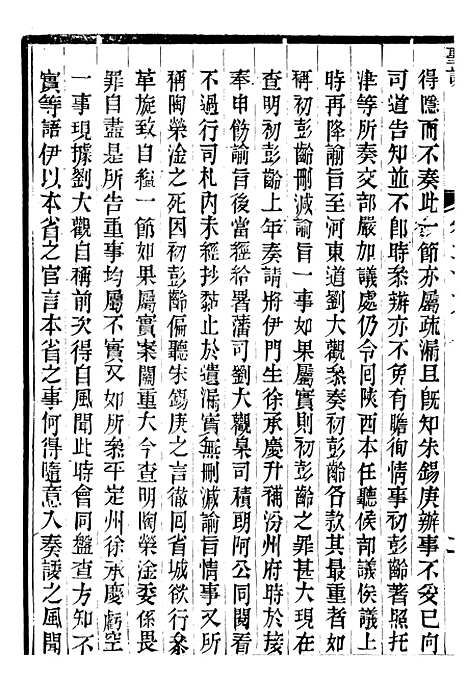 聖訓
得隱而不奏此一節亦屬疏漏且旣知朱錫庚辦事不妥已向
司道告知並不卽時叅辦亦不免有瞻徇情事初彭齡著照托
津等所奏交部嚴加議處仍令回陝西本任聽候部議俟議上
時再降諭旨至河東道劉大觀叅奏初彭齡各款其最重者如
稱初彭齡刪減諭旨一事如果屬實則初彭齡之罪甚大現在
查明初彭齡上年奏請將伊門生徐承慶升補汾州府時於接
奉申飭諭旨後當經給署藩司劉大觀臬司積朗阿公同閱看
不過行司札內未經抄黏止於遺漏實無刪減諭旨情事又所
稱陶榮淦之死因初彭齡偏聽朱錫庚之言徹回省城欲行叅
革旋致自縊一節如果屬實案關重大今查明陶榮淦委係畏
罪自盡是所告重事均屬不實又如所叅平定州徐承慶虧空
一事現據劉大觀自稱前次得自風聞此時會同盤查方知不
實等語伊以本省之官言本省之事何得隨意入奏諉之風聞